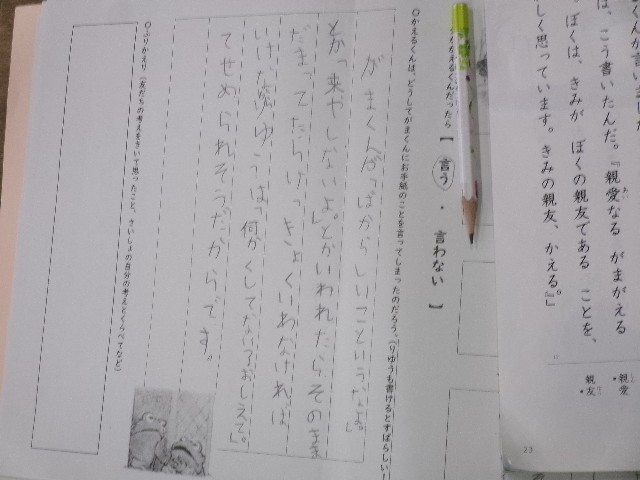 くんが言いま
は、こう書いたんだ。『親愛なる がまがえる
ぼくは、きみが ぼくの親友である ことを、
しく思っています。きみの親友、かえる。』」
・親愛
あい
親友
・
23
かえるくんだったら 【 言う ・ 言わない 】
○かえるくんは、どうしてがまくんにお手紙のことを言ってしまったのだろう。(りゆうも書けるとすばらしい!
がまくんが「ばからしいこというなよ。」
とか「来やしないよ。」とかいわれたらそのまま
だまってたらけっきょくいわなければ
いけな
ゆうは「何かくしてないでおしえて」。
てせめられそうだからです。
○ふりかえり(友だちの考えをきいて思ったこと、さいしょの自分の考えとくらべてなど)